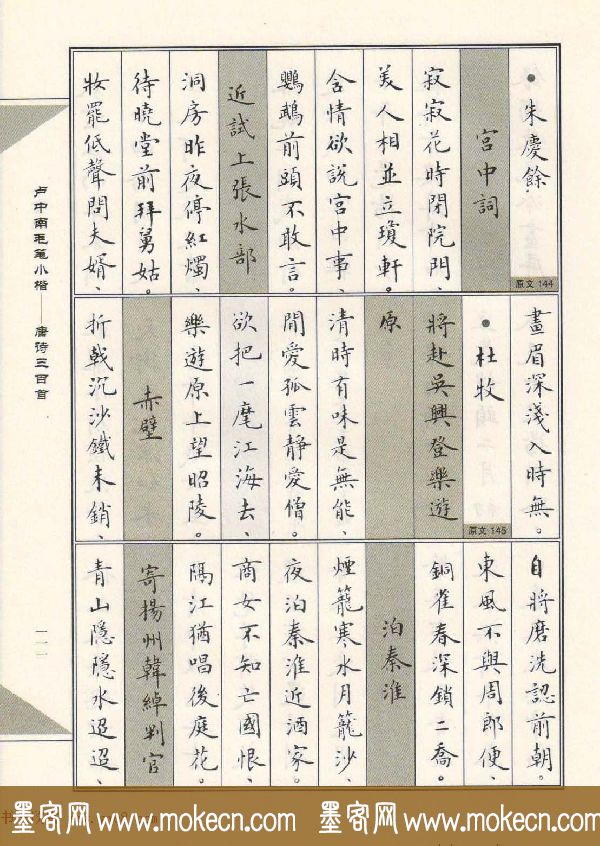 •朱慶餘
原文 144
宮中詞
寂寂花時閉院門、
美人相並立瓊軒。
含情欲說宮中事、
鸚鵡前頭不敢言。
近試上張水部
洞房昨夜停紅燭、
待曉堂前拜舅姑。
妝罷低聲問夫婿、
畫眉深淺入時無。
•杜牧
原文 145
將赴吳興登樂遊
原
清時有味是無能、
閒愛孤雲靜愛僧。
欲把一麾江海去、
樂遊原上望昭陵。
赤壁
折戟沉沙鐵未銷、
自將磨洗認前朝。
東風不與周郎便、
銅雀春深鎖二喬。
泊秦淮
煙籠寒水月籠沙、
夜泊秦淮近酒家。
商女不知亡國恨、
隔江猶唱後庭花。
寄揚州韓綽判官
青山隱隱水迢迢、
卢中南毛笔小楷——唐诗三百首
一一一
墨客网 www.mokecn.com 墨客网 www.mokecn.com